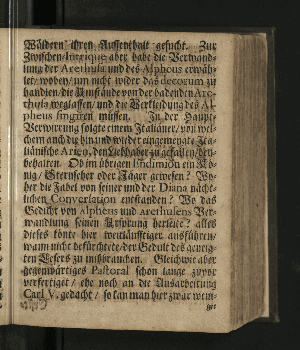 Wäldern ihren Auffenthalt gesucht. Zur
Zwischen-Intrigue aber habe die Verwand-
lung der Arethusa und des Alpheus erwäh-
let/ wobey/ um nicht wider das decorum zu
handlen/ die Umstände von der badenden Are-
thusa weglassen/ und die Verkleidung des Al-
pheus fingiren müssen. In der Haupt-
Verwirrung folgte einem Italiäner/ von wel-
chem auch die hin und wieder eingemengte Ita-
liänische Arien, den Liebhaber zu gefallen/ bey-
behalten. Ob im übrigen Endimion ein Kö-
nig/ Sternseher oder Jäger gewesen? Wo-
her die Fabel von seiner und der Diana nächt-
lichen Conversation entstanden? Wo das
Gedicht von Alpheus und Arethusens Ver-
wandlung seinen Ursprung herleite? alles
dieses könte hier weitläufftiger ausführen/
wann nicht befürchtete/ der Gedult des geneig-
ten Lesers zu mißbrauchen. Gleichwie aber
gegenwärtiges Pastoral schon lange zuvor
verfertiget/ ehe noch an die Ausarbeitung
Carl V. gedacht/ so kan man hier zwar weni-
ger